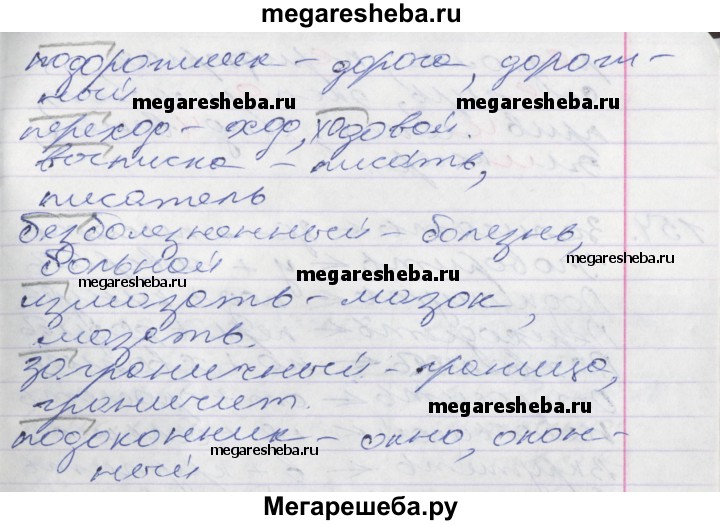 megaresheba.ru
подорожник – дорога, дорож-
ный
megaresheba.ru
megaresheba.ru
переход – ход, ходовой.
восписка – писать,
писатель
безболезненный – болезнь,
больной
megaresheba.ru
megaresheba.ru
измазать – мазок,
мазать.
заграничный – граница,
граничит.
megaresheba.ru
подоконник – окно, окон-
ный
megaresheba.ru
Мегарешеба.ру